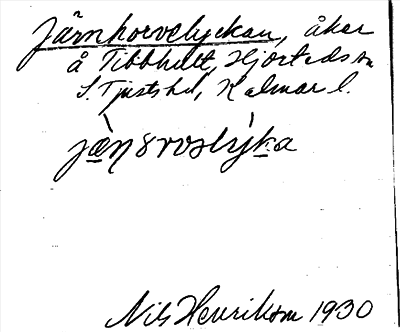 Järnhorvelyckan, åker
å Tibbhult, Hjorteds sn
S. Tjusts hd, Kalmar l.
Nils Henrikson 1930